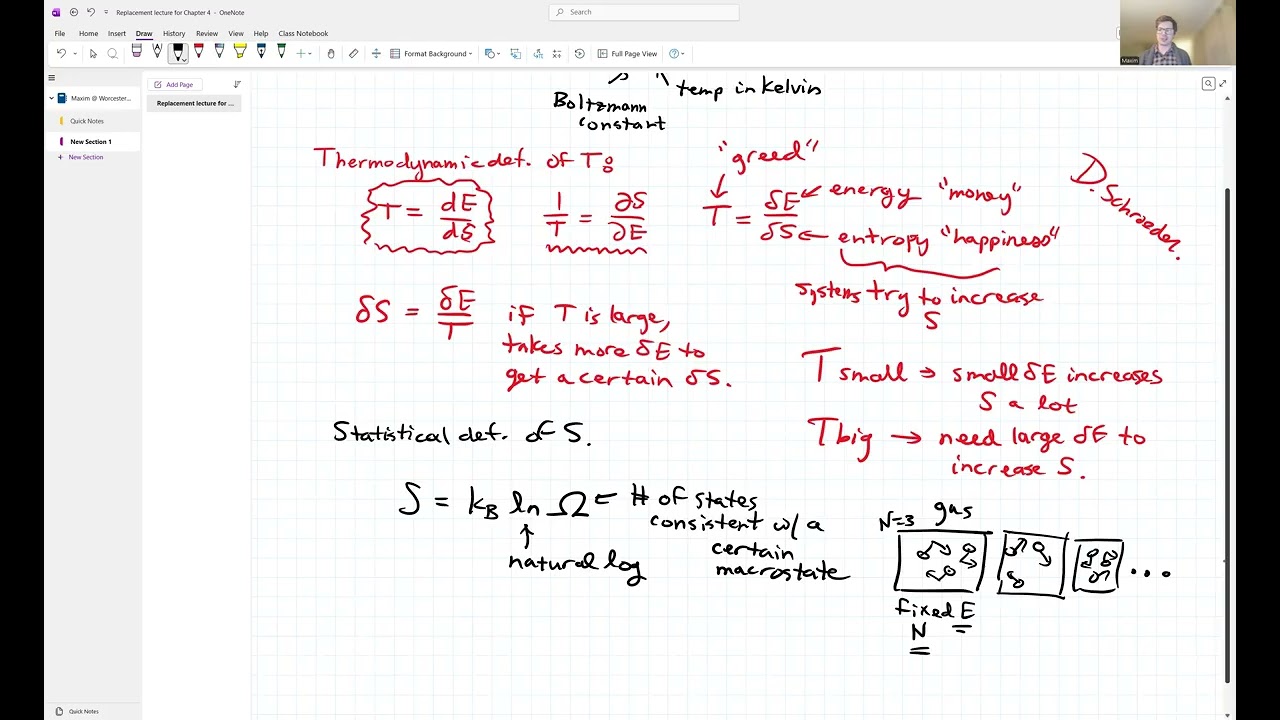 Replacement lecture for Chapter 4 - OneNote
Search
File Home Insert Draw History Review View Help Class Notebook
Format Background
Full Page View
Maxim @ Worcester...
Quick Notes
New Section 1
New Section
Add Page
Replacement lecture for ...
Maxim
temp in Kelvin
Boltzmann
constant
Thermodynamic def. of T:
T = dE/dS
1/T = ∂S/∂E
"greed"
T = δE/δS
energy "money"
entropy "happiness"
D. Schroeder.
systems try to increase
S
δS = δE/T
if T is large,
takes more δE to
get a certain δS.
T small → small δE increases
S a lot
T big → need large δE to
increase S.
Statistical def. of S.
S = kB ln Ω ← # of states
consistent w/ a
certain
macrostate
natural log
N=3 gas
...
fixed E
N
Quick Notes